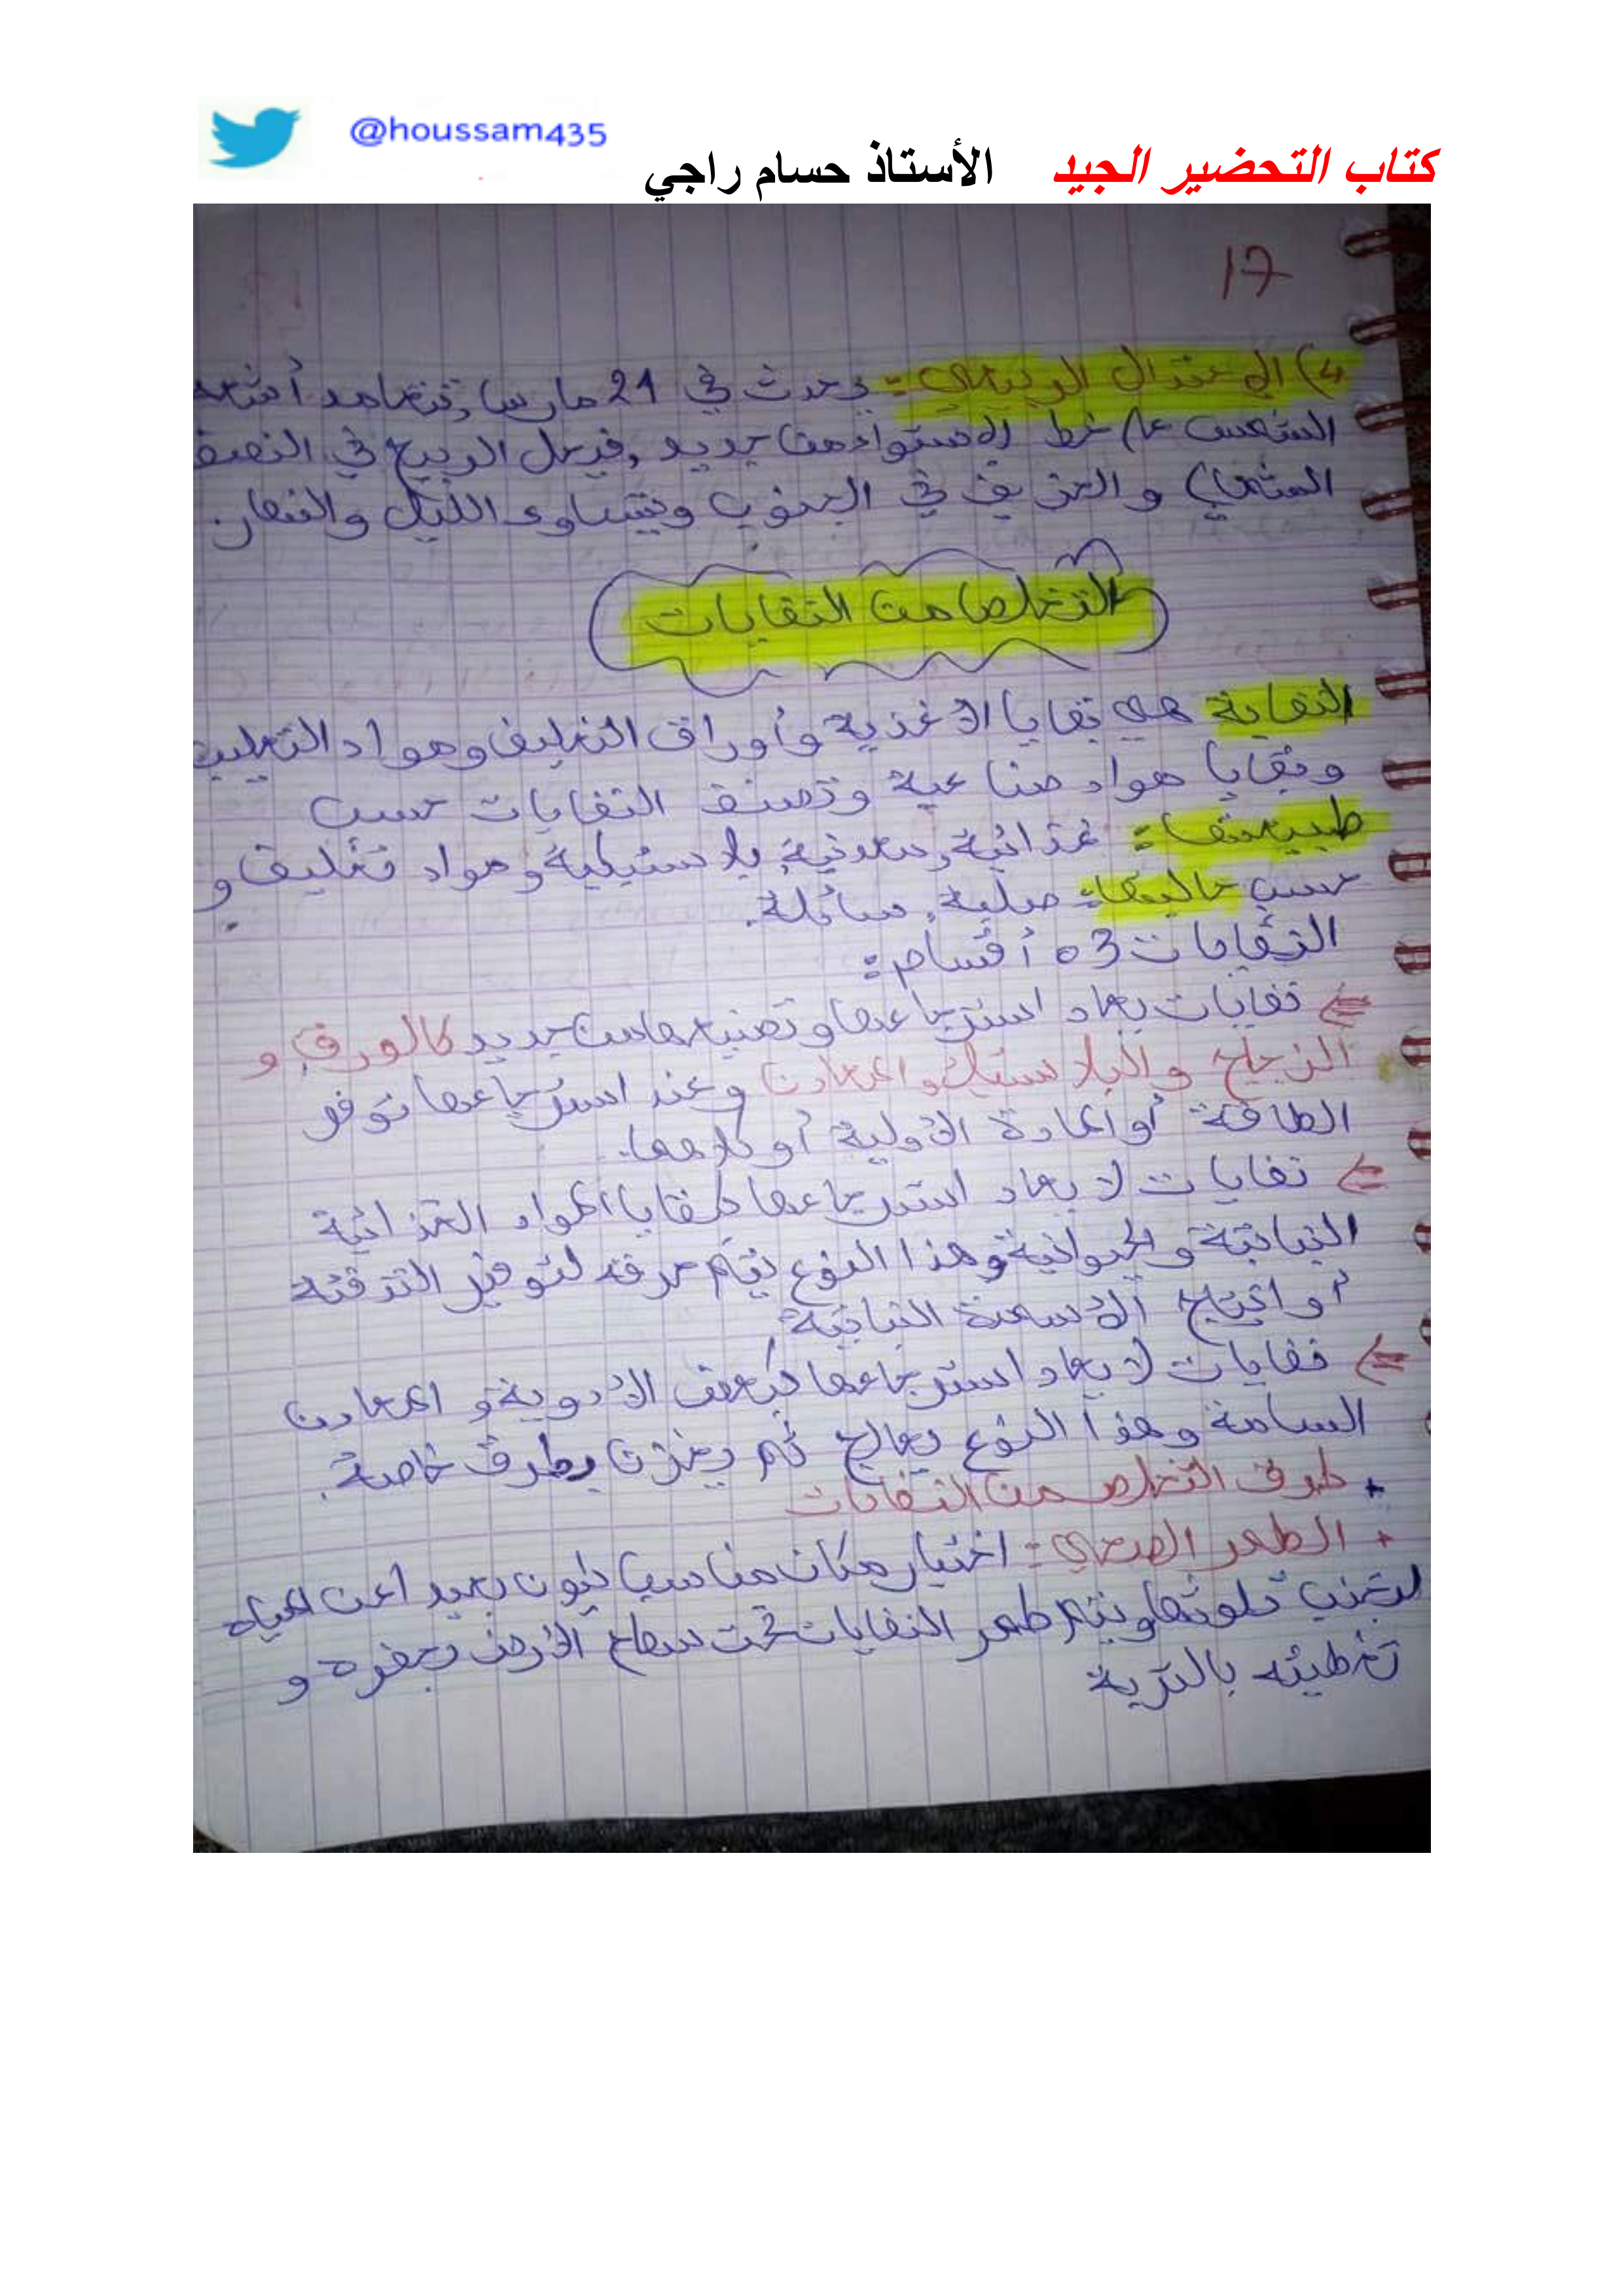 @houssam435
كتاب التحضير الجيد الأستاذ حسام راجي
17
4) الاعتدال الربيعي: يحدث في 21 مارس, تتعامد أشعة
الشمس على خط الاستواء من جديد, فيحل الربيع في النصف
الشمالي والخريف في الجنوب ويتساوى الليل والنهار.
التخلص من النفايات
النفاية هي بقايا الأغذية وأوراق التغليف ومواد التعليب
وبقايا مواد صناعية وتصنف النفايات حسب
طبيعتها: غذائية, معدنية, بلاستيكية ومواد تغليف و
حسب حالتها: صلبة, سائلة.
النفايات 03 أقسام:
نفايات يعاد استرجاعها وتصنيعها من جديد كالورق و
الزجاج والبلاستيك والمعادن وعند استرجاعها توفر
الطاقة أو المادة الأولية أو كلاهما.
نفايات لا يعاد استرجاعها كبقايا المواد الغذائية
النباتية والحيوانية وهذا النوع يتم حرقه لتوفير التدفئة
أو انتاج الأسمدة النباتية
نفايات لا يعاد استرجاعها كبعض الأدوية والمعادن
السامة وهذا النوع يعالج ثم يخزن بطرق خاصة.
+ طرق التخلص من النفايات
+ الطمر الصحي: اختيار مكان مناسب يكون بعيدا عن المياه
لتجنب تلوثها ويتم طمر النفايات تحت سطح الأرض بحفره و
تغطيته بالتربة